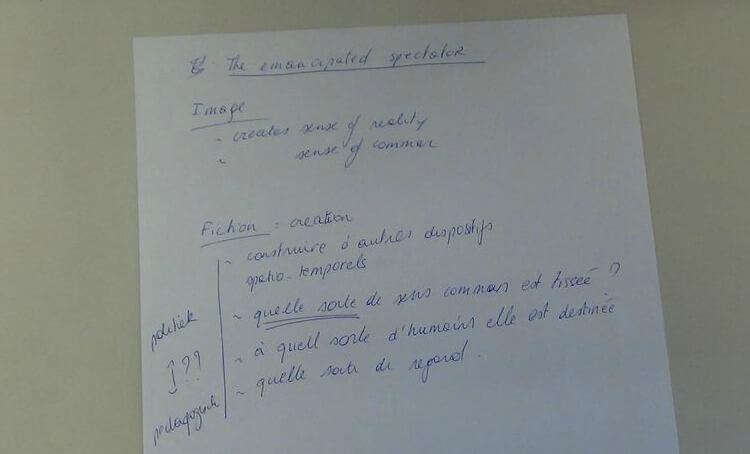 The emancipated spectator
Image
- creates sense of reality
- sense of commun
Fiction = creation
- construire d'autres dispositifs
spatio-temporels
- quelle sorte de sens commun est tissée ?
- à quell sorte d'humains elle est destinée
- quelle sorte de regard.
politiek
??
pedagogiek